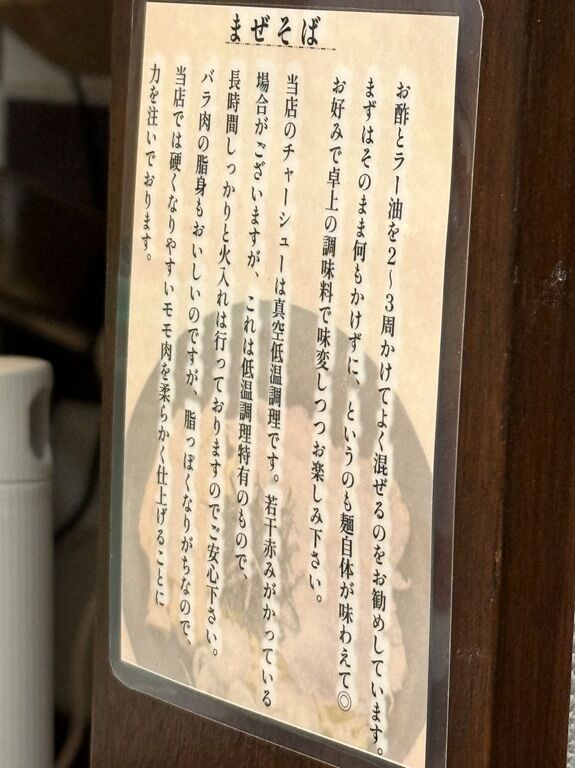 まぜそば
お酢とラー油を2〜3周かけてよく混ぜるのをお勧めしています。
まずはそのまま何もかけずに、というのも麺自体が味わえて◎
お好みで卓上の調味料で味変しつつお楽しみ下さい。
当店のチャーシューは真空低温調理です。若干赤みがかっている
場合がございますが、これは低温調理特有のもので、
長時間しっかりと火入れは行っておりますのでご安心下さい。
バラ肉の脂身もおいしいのですが、脂っぽくなりがちなので、
当店では硬くなりやすいモモ肉を柔らかく仕上げることに
力を注いでおります。